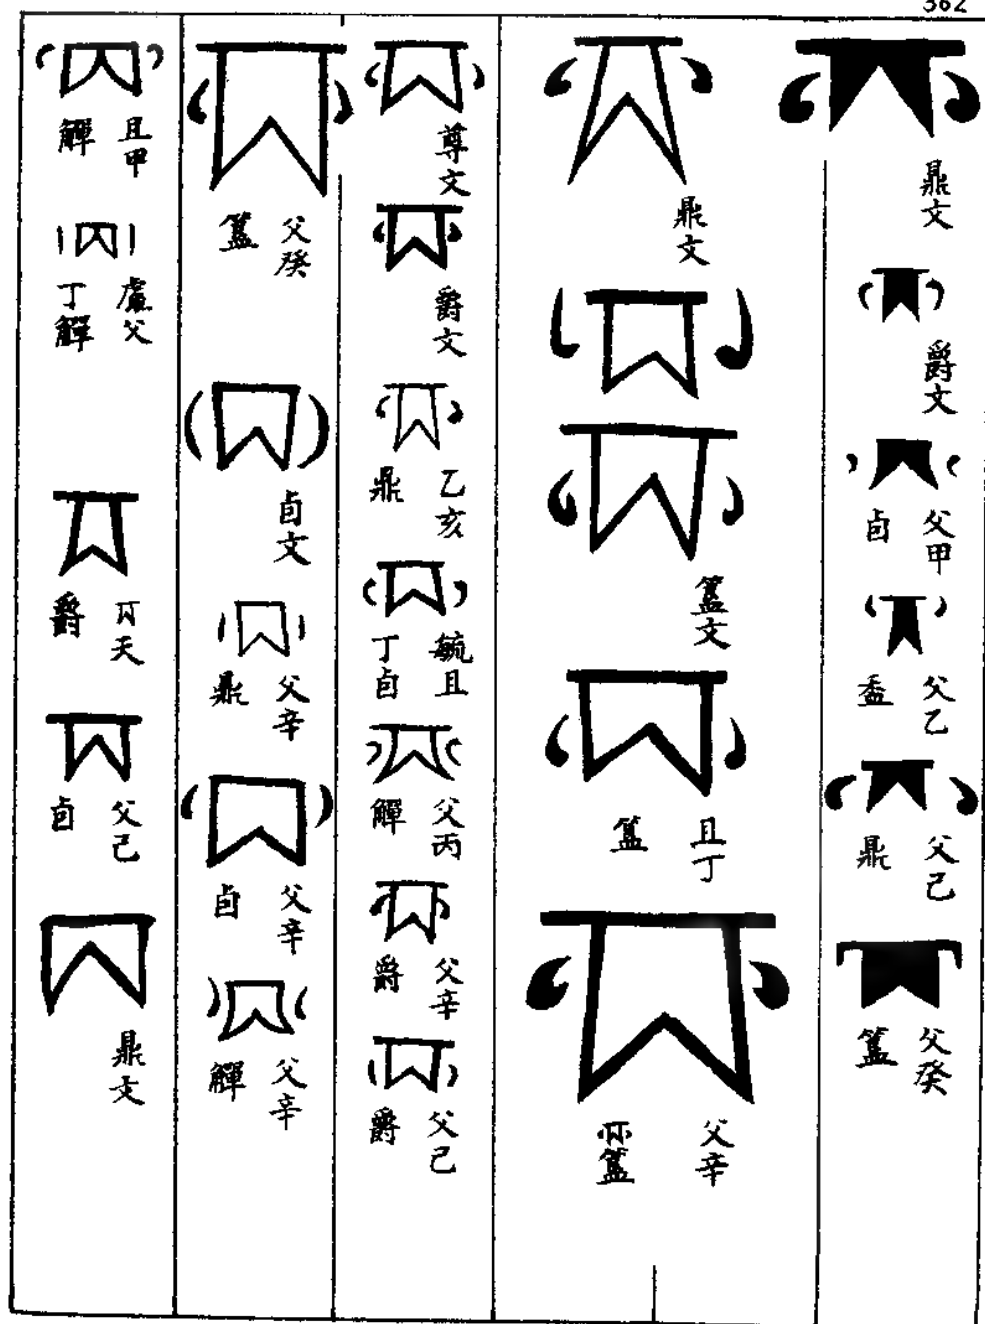 362
鼎文
爵文
父甲卣
父乙盉
父己鼎
父癸簋
鼎文
簋文
且丁簋
父辛簋
尊文
爵文
乙亥鼎
毓且丁卣
父丙觶
父辛爵
父己爵
父癸簋
卣文
父辛鼎
父辛卣
父辛觶
且甲觶
父丁觶
天爵
父己卣
鼎文